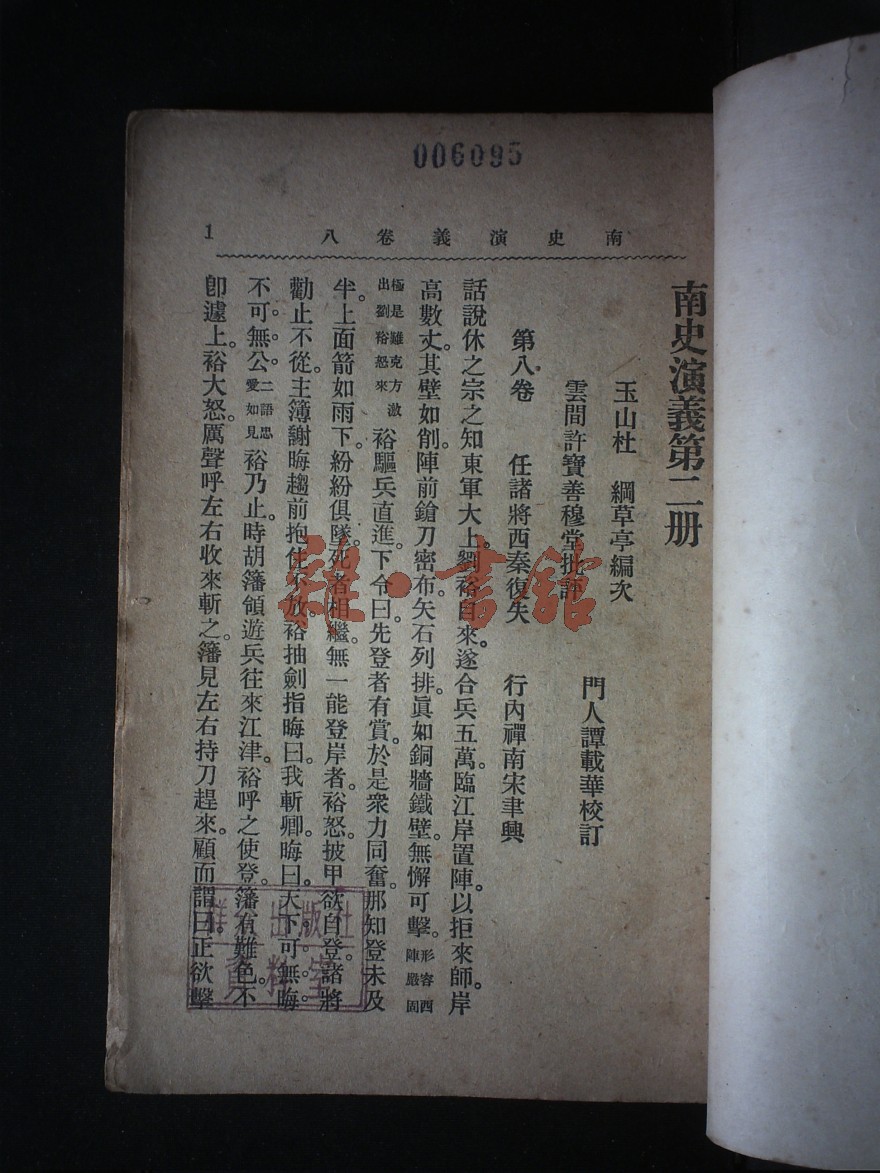 006095
南史演義卷八
1
南史演義第二册
玉山杜　綱草亭編次
雲間許寶善穆堂批評
門人譚載華校訂
第八卷　任諸將西秦復失　行內禪南宋聿興
話說休之宗之知東軍大上。劉裕自來。遂合兵五萬。臨江岸置陣。以拒來師。岸
高數丈。其壁如削。陣前鎗刀密布。矢石列排。眞如銅牆鐵壁。無懈可擊。形容西陣嚴固
極是難克方激出劉裕怒來裕驅兵直進。下令曰。先登者有賞。於是衆力同奮。那知登未及
半。上面箭如雨下。紛紛俱墜。死者相繼。無一能登岸者。裕怒。披甲欲自登。諸將
勸止不從。主簿謝晦趨前抱住不放。裕抽劍指晦曰。我斬卿。晦曰。天下可無晦。
不可無公。二語忠愛如見裕乃止。時胡籓領遊兵往來江津。裕呼之使登。籓有難色。不
卽遽上。裕大怒。厲聲呼左右收來斬之。籓見左右持刀趕來。顧而謂曰。正欲擊
雜·書館
出版社
資料室